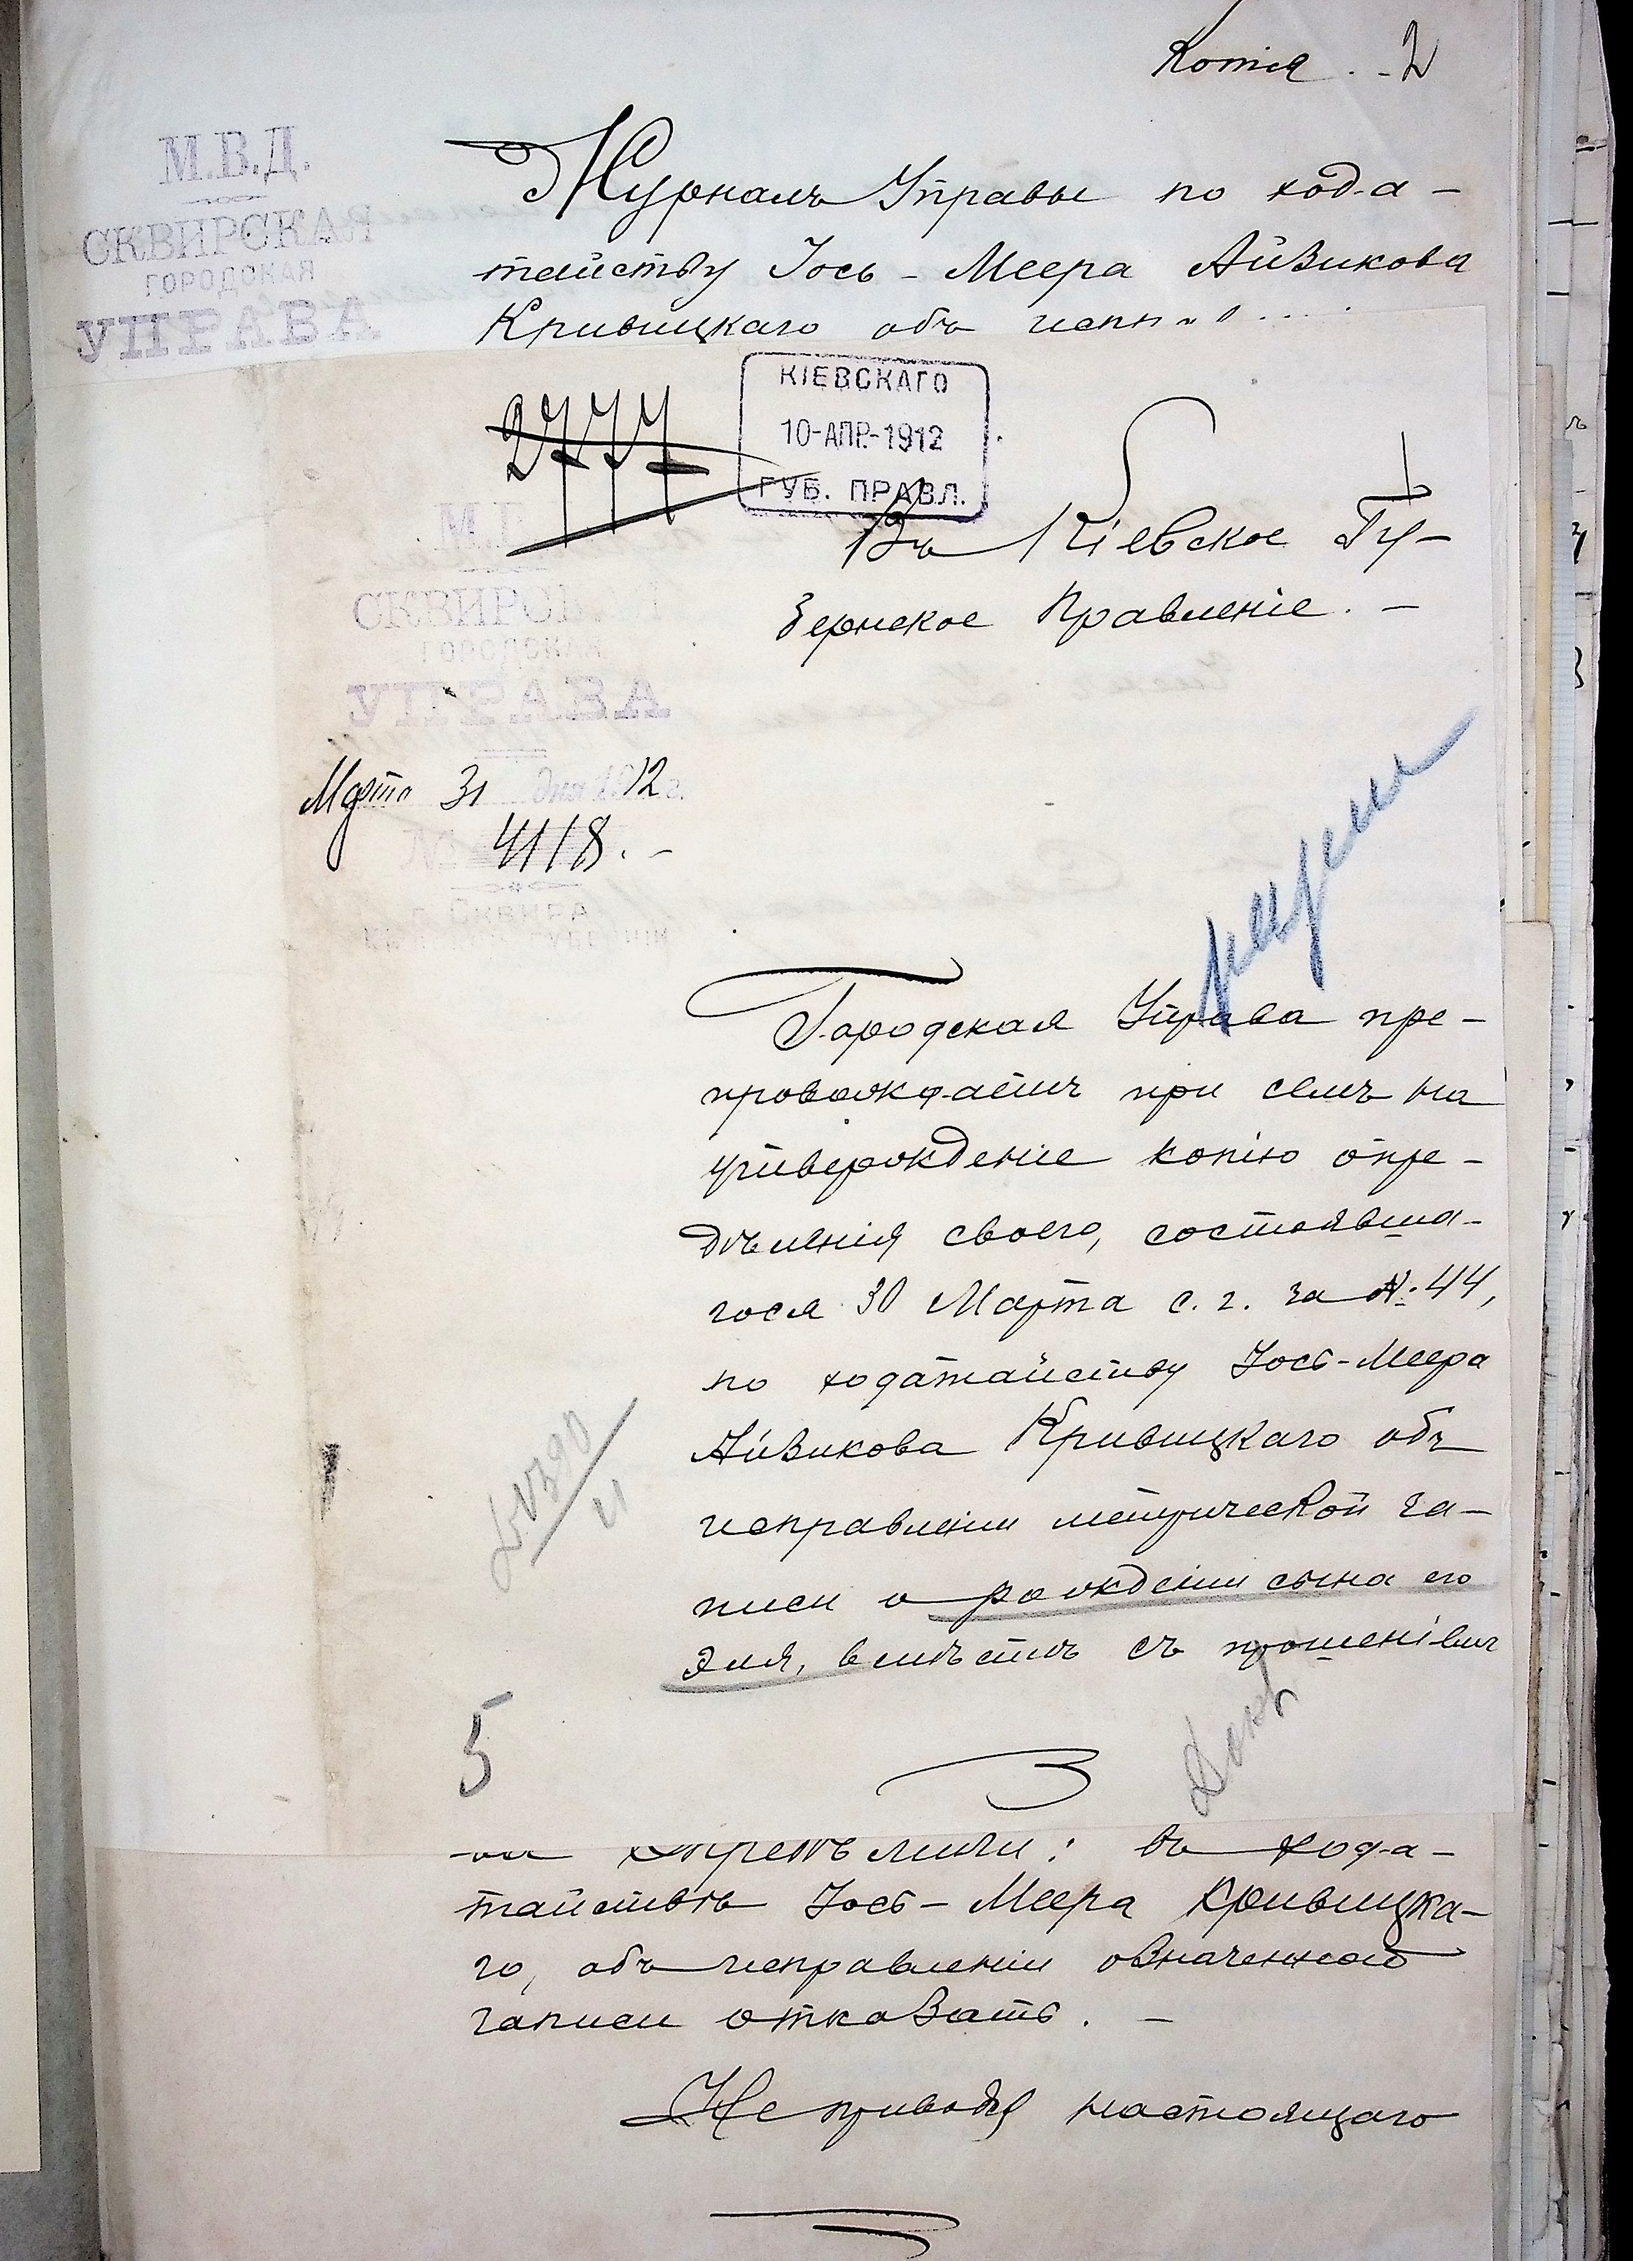 Копія. 2
М.В.Д.
СКВИРСКАЯ
ГОРОДСКАЯ
УПРАВА
Журналъ Управы по хода-
тайству Іось-Меера Айзикова
Кривицкаго объ
2777
КІЕВСКАГО
10-АПР.-1912
ГУБ. ПРАВЛ.
Въ Кіевское Гу-
бернское Правленіе. -
СКВИРСКАЯ
ГОРОДСКАЯ
УПРАВА
Марта 31 дня 1912 г.
№ 4118. -
г. СКВИРА
Городская Управа пре-
провождаетъ при семъ на
утвержденіе копію опре-
дѣленія своего, состоявша-
гося 30 Марта с. г. за №. 44,
по ходатайству Іось-Меера
Айзикова Кривицкаго объ
исправленіи метрической за-
писи о рожденіи сына его
Эля, вмѣстѣ съ прошеніемъ
5
Опредѣлили: въ хода-
тайствѣ Іось-Меера Кривицка-
го, объ исправленіи означенной
записи отказать. -
Не приводя настоящаго